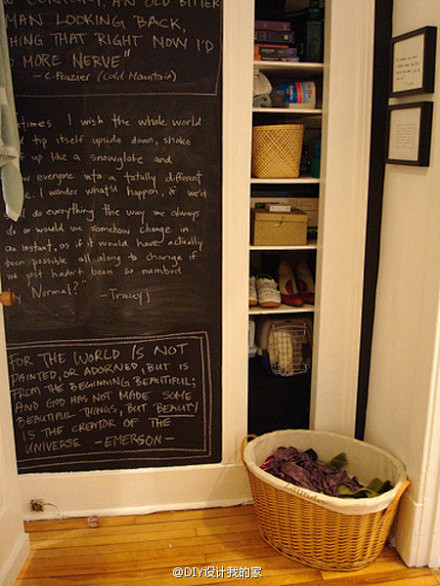 AN OLD BITTER
MAN LOOKING BACK,
THAT RIGHT NOW I'D
MORE NERVE"
- C. Frazier (Cold Mountain)
I wish the whole world
tip itself upside down, shake
up like a snowglobe and
everyone into a totally different
I wonder what'd happen, if we'd
do everything the way we always
do or would we somehow change in
an instant, as if it would have actually
been possible all along to change if
we just hadn't been so numbed
Normal?" - Tracey
FOR THE WORLD IS NOT
PAINTED, OR ADORNED, BUT IS
FROM THE BEGINNING BEAUTIFUL;
AND GOD HAS NOT MADE SOME
BEAUTIFUL THINGS, BUT BEAUTY
IS THE CREATOR OF THE
UNIVERSE - EMERSON -
Laundry
@DIY设计我的家